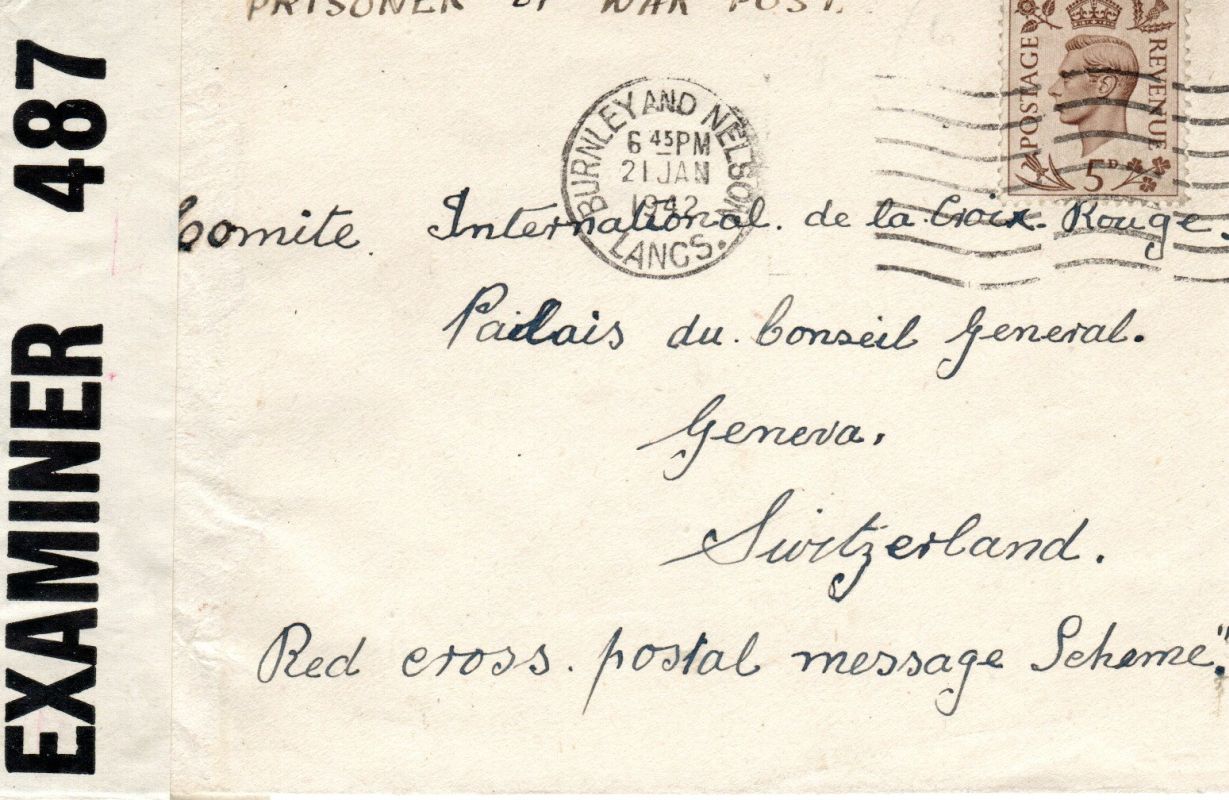 PRISONER OF WAR POST.
POSTAGE REVENUE
5D
BURNLEY AND NELSON
6 45 PM
21 JAN
1942
LANCS.
Comite. International. de la Croix Rouge.
Palais du Conseil General.
Geneva.
Switzerland.
Red cross. postal message Scheme".
EXAMINER 487